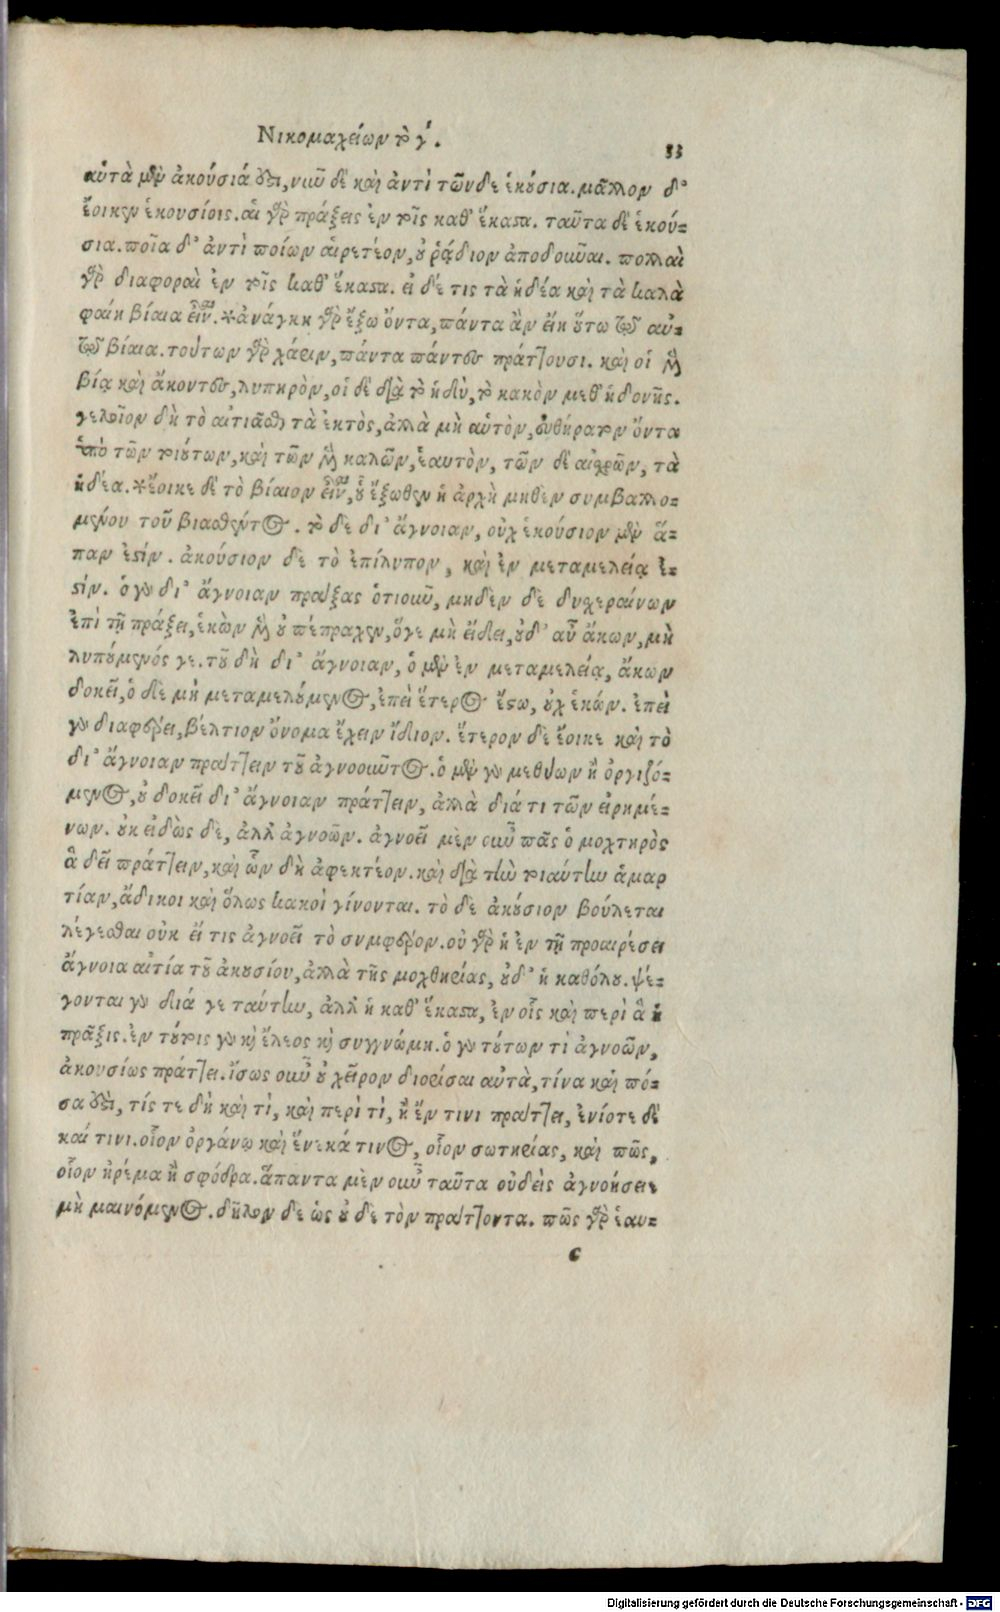 Νικομαχείων τὸ γʹ.
33
αὑτὰ μὲν ἀκούσιά ἐστι, νιῦ δὲ καὶ ἀντὶ τῶνδε ἑκούσια. μᾶλλον δ'
ἔοικεν ἑκουσίοις. αἱ γὰρ πράξεις ἐν τοῖς καθ' ἕκαστα. ταῦτα δὲ ἑκού=
σια. ποῖα δ' ἀντὶ ποίων αἱρετέον, οὐ ῥᾴδιον ἀποδοῦναι. πολλαὶ
γὰρ διαφοραὶ ἐν τοῖς καθ' ἕκαστα. εἰ δέ τις τὰ ἡδέα καὶ τὰ καλὰ
φαίη βίαια εἶναι. *ἀνάγκη γὰρ ἔξω ὄντα, πάντα ἂν εἴη οὕτω τῷ αὐ=
τῷ βίαια. τούτων γὰρ χάριν, πάντα πάντες πράττουσι. καὶ οἱ μὲν
βίᾳ καὶ ἄκοντες, λυπηρὸν, οἱ δὲ διὰ τὸ ἡδὺ, τὸ κακὸν μεθ' ἡδονῆς.
γελοῖον δὴ τὸ αἰτιᾶσθαι τὰ ἐκτὸς, ἀλλὰ μὴ αὑτὸν, εὐθήρατον ὄντα
ὑπὸ τῶν τοιούτων, καὶ τῶν μὲν καλῶν, ἑαυτὸν, τῶν δὲ αἰσχρῶν, τὰ
ἡδέα. *ἔοικε δὲ τὸ βίαιον εἶναι, οὗ ἔξωθεν ἡ ἀρχὴ μηθὲν συμβαλλο=
μένου τοῦ βιασθέντος. τὸ δὲ δι' ἄγνοιαν, οὐχ ἑκούσιον μὲν ἅ=
παν ἐστίν. ἀκούσιον δὲ τὸ ἐπίλυπον, καὶ ἐν μεταμελείᾳ ἐ=
στίν. ὁ γοῦν δι' ἄγνοιαν πράξας ὁτιοῦν, μηδὲν δὲ δυχεραίνων
ἐπὶ τῇ πράξει, ἑκὼν μὲν οὐ πέπραχεν, ὅγε μὴ εἴδει, οὐδ' αὖ ἄκων, μὴ
λυπούμενός γε. τοῦ δὴ δι' ἄγνοιαν, ὁ μὲν ἐν μεταμελείᾳ, ἄκων
δοκεῖ, ὁ δὲ μὴ μεταμελούμενος, ἐπεὶ ἕτερος ἔστω, οὐχ ἑκών. ἐπεὶ
γοῦν διαφέρει, βέλτιον ὄνομα ἔχειν ἴδιον. ἕτερον δὲ ἔοικε καὶ τὸ
δι' ἄγνοιαν πράττειν τοῦ ἀγνοοῦντος. ὁ μὲν γοῦν μεθύων ἢ ὀργιζό=
μενος, οὐ δοκεῖ δι' ἄγνοιαν πράττειν, ἀλλὰ διά τι τῶν εἰρημέ=
νων. οὐκ εἰδὼς δὲ, ἀλλ' ἀγνοῶν. ἀγνοεῖ μὲν οὖν πᾶς ὁ μοχτηρὸς
ἃ δεῖ πράττειν, καὶ ὧν δὴ ἀφεκτέον. καὶ διὰ τὴν τοιαύτην ἁμαρ
τίαν, ἄδικοι καὶ ὅλως κακοὶ γίνονται. τὸ δὲ ἀκούσιον βούλεται
λέγεσθαι οὐκ εἴ τις ἀγνοεῖ τὸ συμφέρον. οὐ γὰρ ἡ ἐν τῇ προαιρέσει
ἄγνοια αἰτία τοῦ ἀκουσίου, ἀλλὰ τῆς μοχθηρίας, οὐδ' ἡ καθόλου. ψέ=
γονται γοῦν διά γε ταύτην, ἀλλ' ἡ καθ' ἕκαστα, ἐν οἷς καὶ περὶ ἃ ἡ
πρᾶξις. ἐν τούτοις γοῦν καὶ ἔλεος καὶ συγγνώμη. ὁ γοῦν τούτων τὶ ἀγνοῶν,
ἀκουσίως πράττει. ἴσως οὖν οὐ χεῖρον διορίσαι αὐτὰ, τίνα καὶ πό=
σα ἐστὶ, τίς τε δὴ καὶ τὶ, καὶ περὶ τὶ, ἢ ἔν τινι πράττει, ἐνίοτε δὲ
καί τινι. οἷον ὀργάνῳ καὶ ἕνεκά τινος, οἷον σωτηρίας, καὶ πῶς,
οἷον ἠρέμα ἢ σφόδρα. ἅπαντα μὲν οὖν ταῦτα οὐδεὶς ἀγνοήσειε
μὴ μαινόμενος. δῆλον δὲ ὡς οὐ δὲ τὸν πράττοντα. πῶς γὰρ ἑαυ=
c
Digitalisierung gefördert durch die Deutsche Forschungsgemeinschaft · DFG